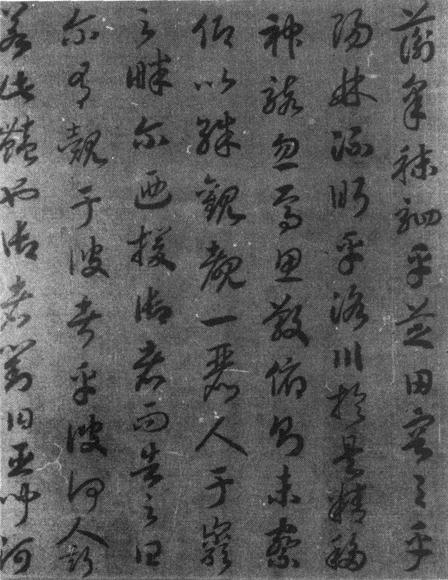 蘅皋秣駟乎芝田容与乎
陽林流眄乎洛川於是精移
神駭忽焉思散俯則未察
仰以殊觀覩一麗人于巖
之畔尔迺援御者而告之曰
尔有覿于彼者乎彼何人斯
若此豔也御者對曰臣聞河